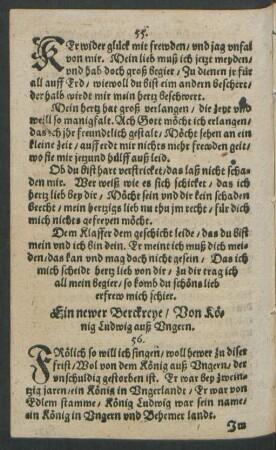 55.
KEr wider glück mit frewden / vnd jag vnfal
von mir. Mein lieb muß ich jetzt meyden /
vnd hab doch groß begier / Zu dienen jr für
all auff Erd / wiewoll du bist eim andern beschert /
derhalb wirdt mir mein hertz beschwert.
Mein hertz hat groß verlangen / die zeyt vnd
weill so manigfalt. Ach Gott möcht ich erlangen /
das ich jhr freundlich gestalt / Möcht sehen an ein
kleine zeit / auff erdt mir nichts mehr frewden geit /
wo sie mir jetzund hülff auß leid.
Ob du bist hart verstricket / das laß nicht scha-
den mir. Wer weiß wie es sich schicket / das ich
hertz lieb bey dir / Möcht sein vnd dir kein schaden
brecht / mein hertzigs lieb nu thu jm recht / für dich
mich nichts gefrewen möcht.
Dem Klaffer dem geschicht leide / das du bist
mein vnd ich bin dein. Er meint ich muß dich mei-
den / das kan vnd mag doch nicht gesein / Das ich
mich scheide hertz lieb von dir / zu dir trag ich
all mein begier / so komb du schöns lieb
erfrew mich schier.
Ein newer Berckreye / Von Kö-
nig Ludwig auß Vngern.
56.
FRölich so will ich singen / woll hewer zu diser
frist / Wol von dem König auß Vngern / der
vnschuldig gestorben ist. Er war bey zwein-
tzig jaren / ein König in Vngerlandt / Er war von
Edlem stamme / König Ludwig war sein name /
ein König in Vngern vnd Behemer landt.
Im